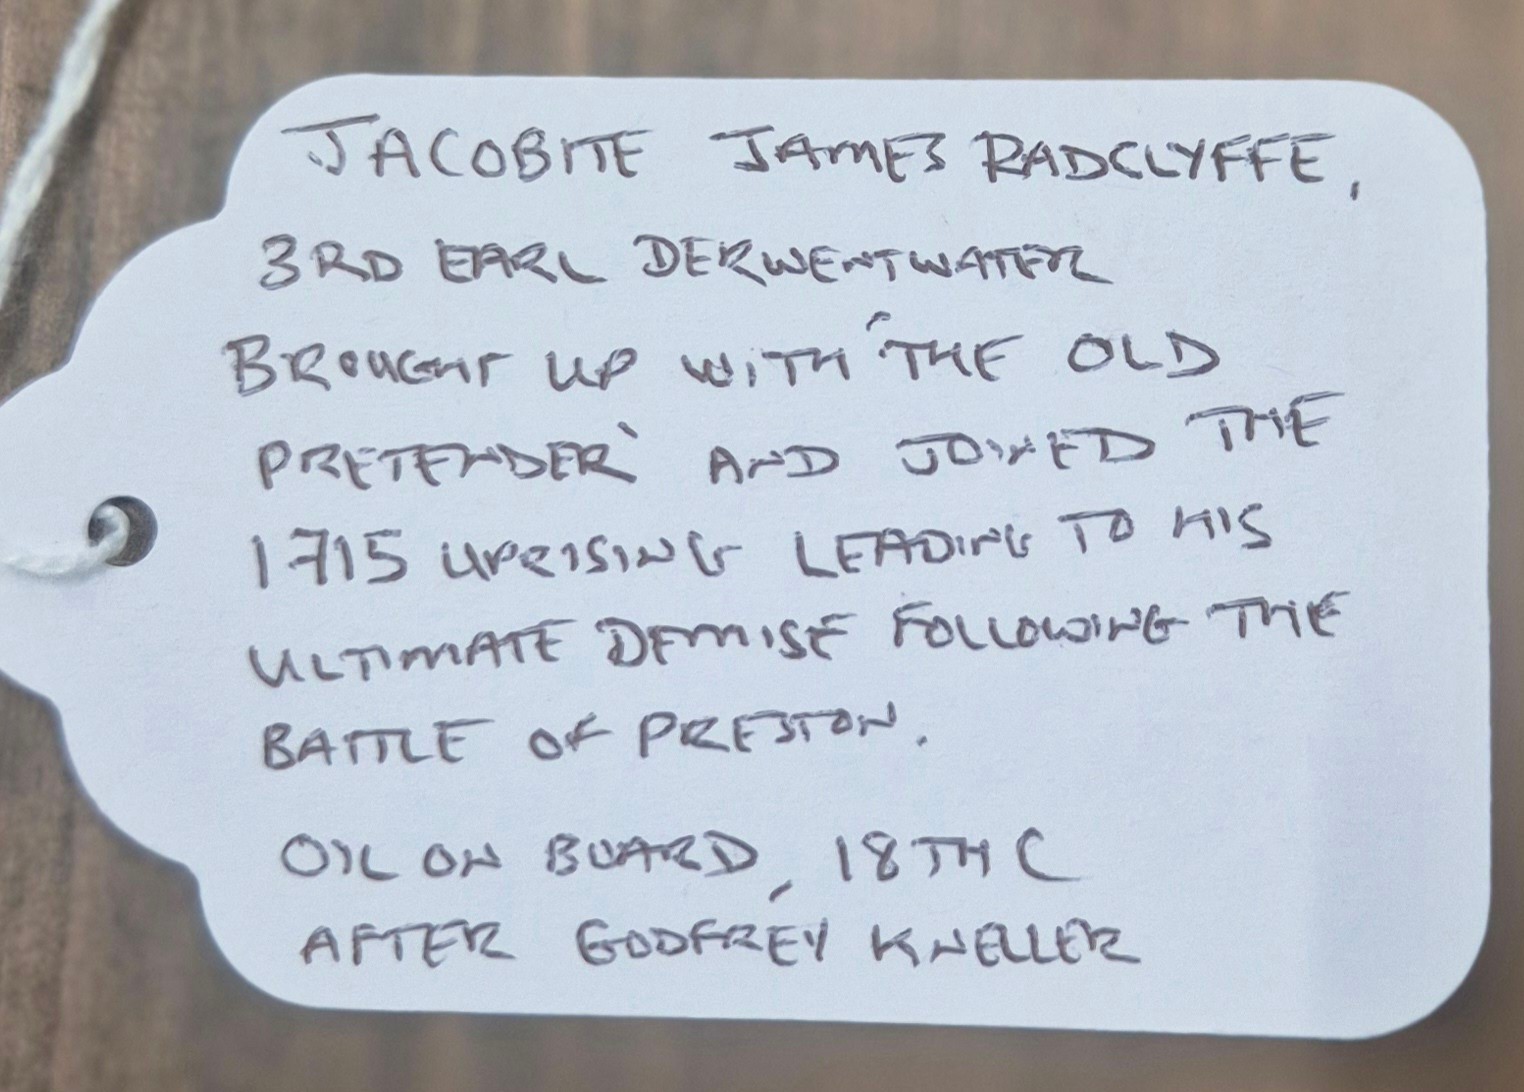 JACOBITE JAMES RADCLYFFE,
3RD EARL DERWENTWATER
BROUGHT UP WITH 'THE OLD
PRETENDER' AND JOINED THE
1715 UPRISING LEADING TO HIS
ULTIMATE DEMISE FOLLOWING THE
BATTLE OF PRESTON.
OIL ON BOARD, 18TH C
AFTER GODFREY KNELLER